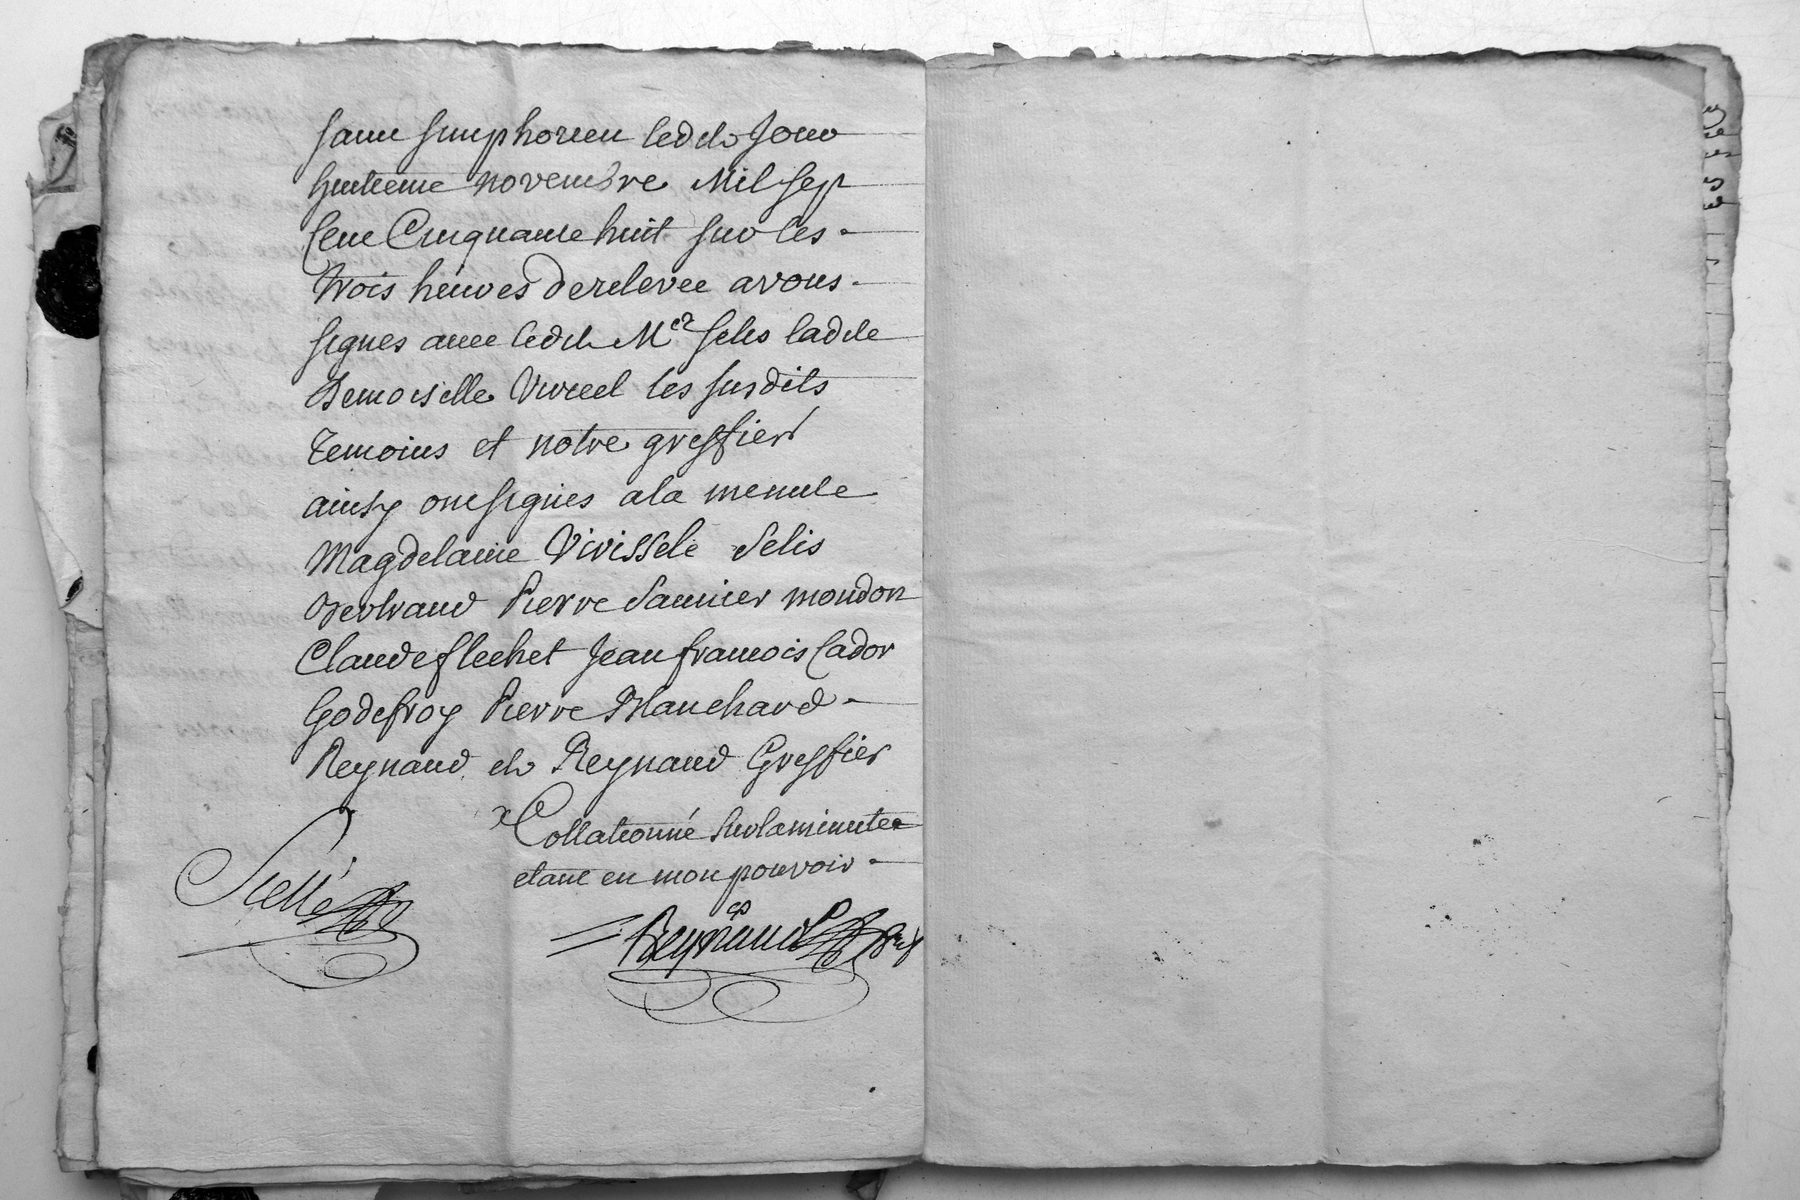 saint simphorien led dt Jour
huitieme novembre Mil sept
Cent Cinquante huit sur les
trois heures de relevee avons
signés avec led dt Mer selis lad dte
Demoiselle Viviel les susdits
temoins et notre greffier
ainsy ont signés a la menute
Magdelaine Vivissele Selis
Bertrand Pierre Saunier mondon
Claude flechet Jean francois Cador
Godefroy Pierre Blanchard
Reynaud et Reynaud Greffier
Collationné sur la minutte
etant en mon pouvoir
Scellé
Reynaud